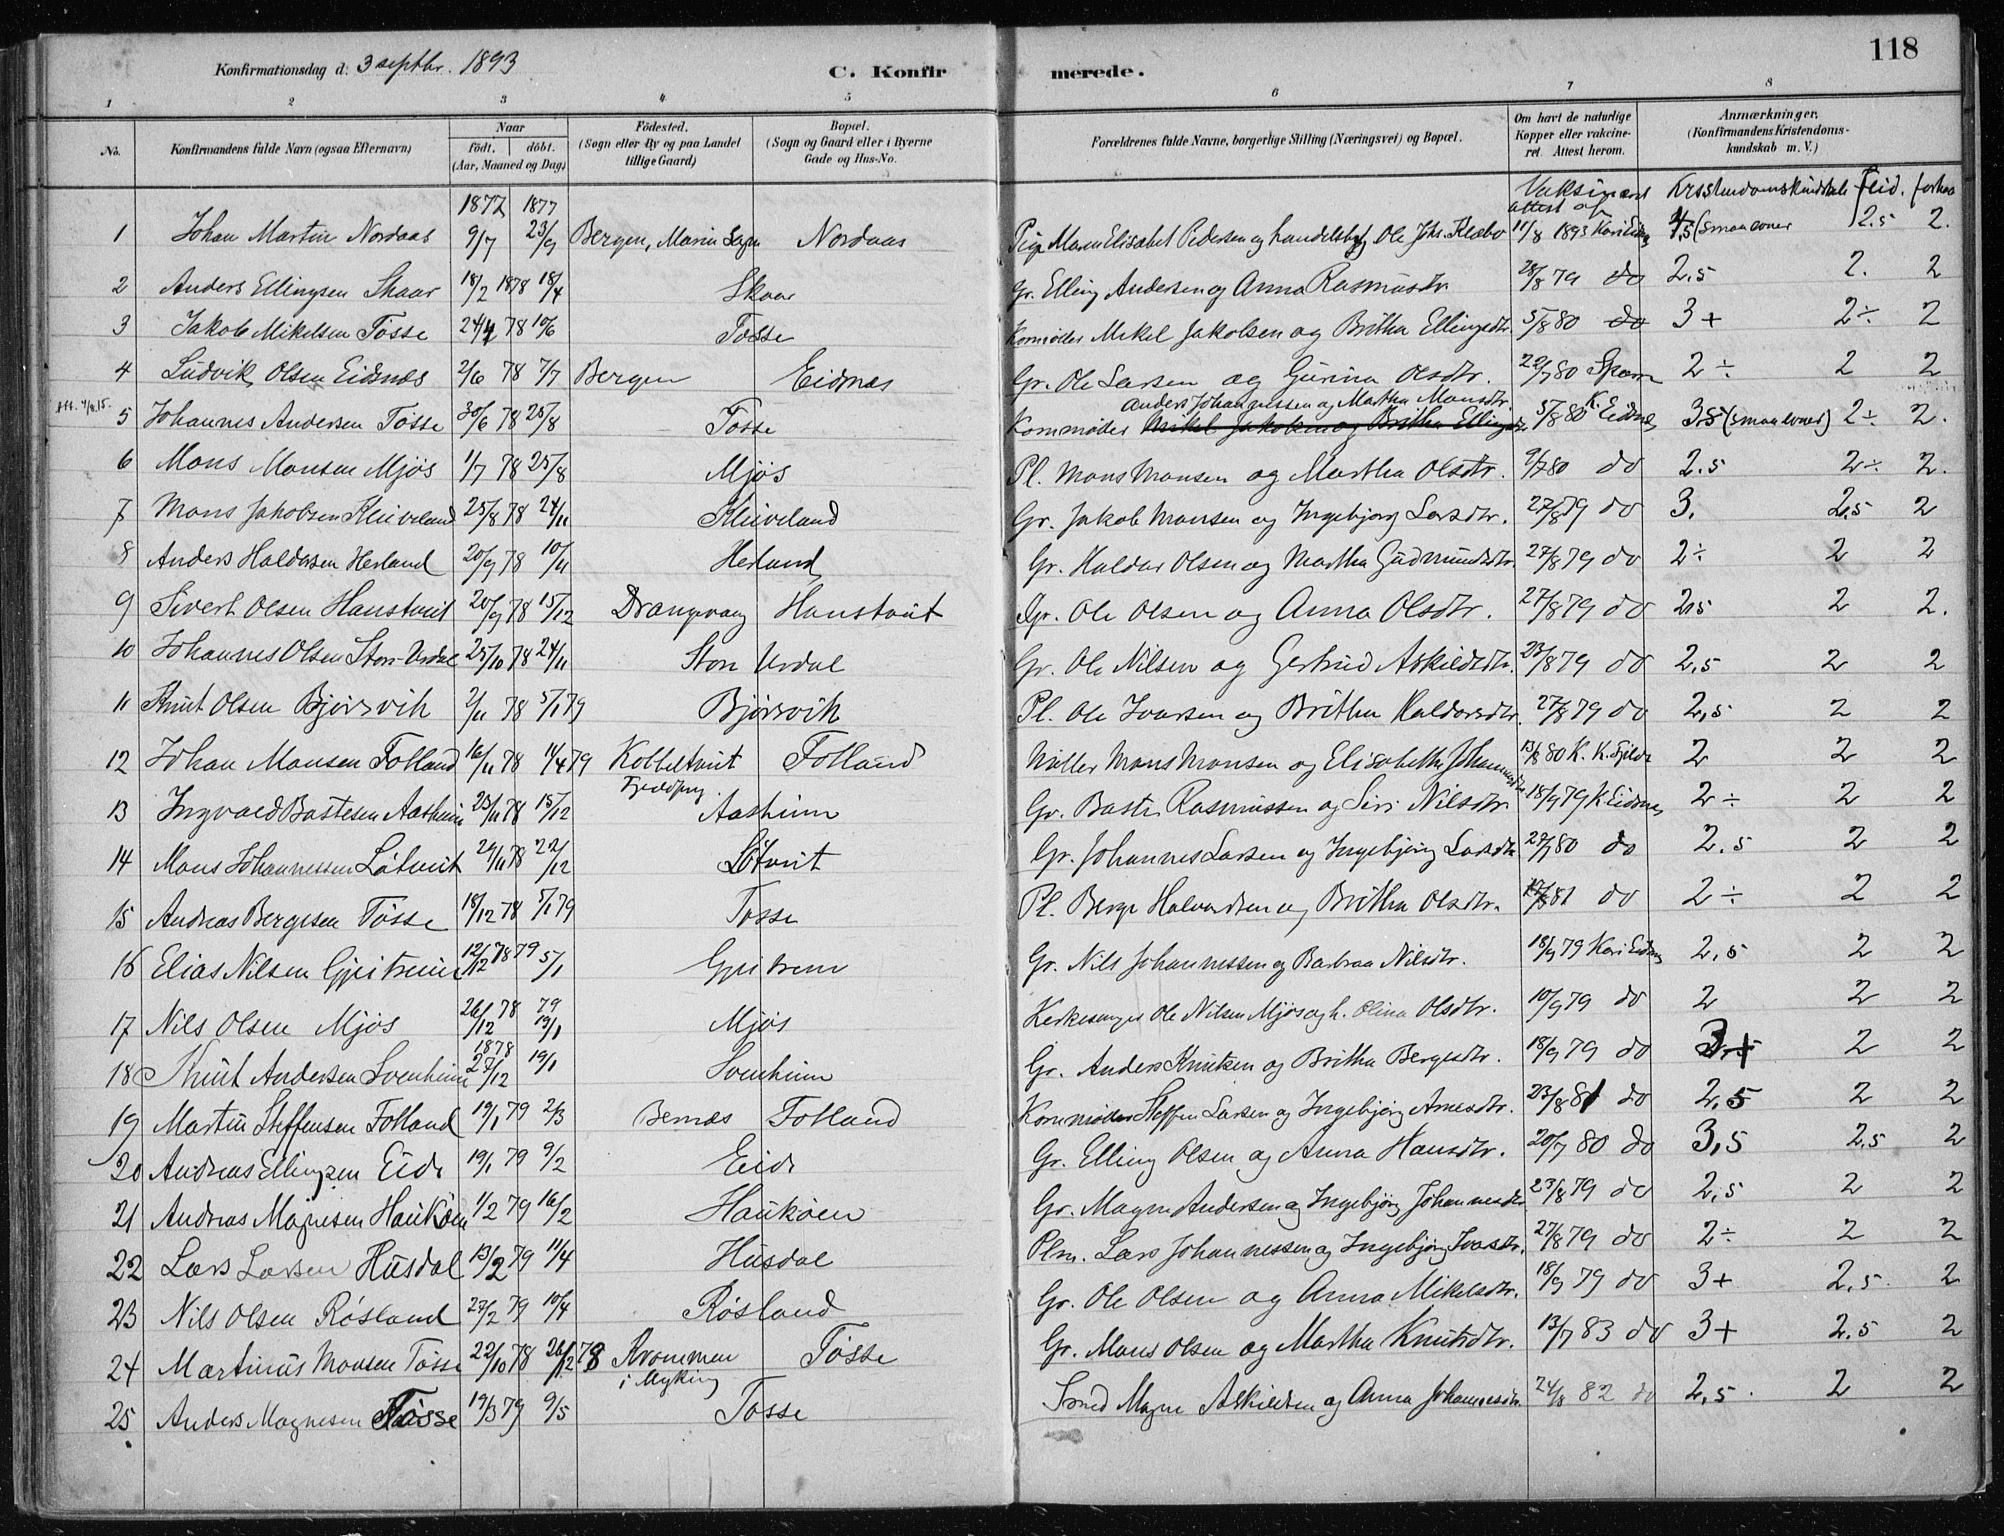 118
Konfirmationsdag d. 3 septbr. 1893
C. Konfirmerede.
1 2 3 4 5 6 7 8
No. Konfirmandens fulde Navn (ogsaa Efternavn) Naar født. døbt. (Aar, Maaned og Dag) Fødested. (Sogn eller By og paa Landet tillige Gaard) Bopæl. (Sogn og Gaard eller i Byerne Gade og Hus-No. Forældrenes fulde Navne, borgerlige Stilling (Næringsvei) og Bopæl. Om havt de naturlige Kopper eller vakcineret. Attest herom. Anmærkninger. (Konfirmandens Kristendomskundskab m. V.)
1877 1877 Vaksineret attest af Kristendomskundskab Flid. forhol
1 Johan Martin Nordaas 9/7 23/9 Bergen, Marie Sogn Nordaas Pige Maren Elisabet Pedersen og handelsbetj Ole Johs. Klebo 11/8 1893 Kari Eidnes 4,5 (smaa evner 2.5 2.
2 Anders Ellingsen Skaar 18/2 1878 18/4 Skaar Gr. Elling Andersen og Anna Rasmusdtr 28/8 79 do 2.5 2. 2
3 Jakob Mikelsen Tøsse 24/4 78 10/6 Tøsse Kornmøller Mikel Jakobsen og Britha Ellingsdtr. 5/8 80 do 3+ 2÷ 2
4 Ludvik Olsen Eidsnæs 2/6 78 7/7 Bergen Eidnæs Gr. Ole Larsen og Gurina Olsdtr. 22/7 80 2÷ 2 2
Att. 4/8.15.
Anders Johannessen og Martha Monsdtr.
5 Johannes Andersen Tøsse 30/6 78 25/8 Tøsse Kornmøller Mikel Jakobsen og Britha Ellingsdtr 5/8 80 K. Eidnes 3.5 (smaa evner) 2÷ 2.
6 Mons Monsen Mjøs 1/7 78 25/8 Mjøs Pl. Mons Monsen og Martha Olsdtr. 9/7 80 do 2.5 2÷ 2.
7 Mons Jakobsen Kleiveland 25/8 78 24/11 Kleiveland Gr. Jakob Monsen og Ingebjørg Larsdtr. 27/8 79 do 3. 2.5 2
8 Anders Haldorsen Herland 20/9 78 10/11 Herland Gr. Haldor Olsen og Martha Gudmundsdtr. 27/8 79 do 2÷ 2 2
9 Sivert Olsen Hanstveit 20/9 78 15/12 Drangevaag Hanstveit Gr. Ole Olsen og Anna Olsdtr. 27/8 79 do 2.5 2 2.
10 Johannes Olsen Store-Urdal 25/10 78 24/11 Store Urdal Gr. Ole Nilsen og Gertrud Askildsdtr. 23/8 79 do 2,5 2 2
11 Knut Olsen Bjørsvik 2/11 78 5/1 79 Bjørsvik Pl. Ole Ivarsen og Britha Haldorsdtr. 27/8 79 do 2,5 2 2
12 Johan Monsen Fotland 16/11 78 14/4 79 Kobbeltveit Fotland Møller Mons Monsen og Elisabeth Johannesdtr 13/8 80 K. K. Fjeld 2 2 2
13 Ingvald Bastesen Aasheim 23/11 78 15/12 Aasheim Gr. Baste Rasmussen og Siri Nilsdtr. 18/9 79 K. Eidnes 2÷ 2 2
14 Mons Johannessen Løtveit 29/11 78 22/12 Løtveit Gr. Johannes Larsen og Ingebjørg Larsdtr 27/7 80 do 2.5 2 2
15 Andreas Bergesen Tøsse 18/12 78 5/1 79 Tøsse Pl. Berge Halvordsen og Britha Olsdtr. 81 do 2÷ 2 2
16 Elias Nilsen Gjeitreim 12/12 78 79 5/1 Gjeitreim Gr. Nils Johannessen og Barbraa Nilsdtr. 18/9 79 Kari Eidnes 2,5 2 2
17 Nils Olsen Mjøs 26/12 78 79 19/1 Mjøs Kirkesanger Ole Nilsen Mjøs og h. Olina Olsdtr. 10/9 79 do 2 2 2
18 Knut Andersen Sveheim 1878 27/12 19/1 Sveheim Gr. Anders Knutsen og Britha Bergesdtr. 18/9 79 do 3+ 2 2
19 Martin Steffensen Fotland 19/1 79 2/3 Bernæs Fotland Kornmøller Steffen Larsen og Ingebjørg Arnesdtr. 23/8 81 do 2,5 2 2
20 Andreas Ellingsen Eide 19/1 79 9/2 Eide Gr. Elling Olsen og Anna Hansdtr. 20/7 80 do 3,5 2,5 2
21 Andreas Magnesen Haukøen 1/2 79 16/2 Haukøen Gr. Magne Andersen og Ingebjørg Johannesdtr 23/8 79 do 2,5 2 2
22 Lars Larsen Husdal 13/2 79 11/4 Husdal Plm. Lars Johannessen og Ingebjørg Ivarsdtr. 27/8 79 do 2÷ 2 2
23 Nils Olsen Røsland 27/2 79 10/4 Røsland Gr. Ole Olsen og Anna Mikelsdtr. 18/9 79 do 3+ 2,5 2
24 Martinus Monsen Tøsse 22/10 78 26/12 78 Krommen i Myking Tøsse Gr. Mons Olsen og Martha Knutsdtr. 13/7 83 do 3+ 2,5 2
25 Anders Magnesen Tøsse 19/3 79 9/5 Tøsse Smed Magne Askildsen og Anna Johannesdtr. 24/8 82 do 2,5. 2 2